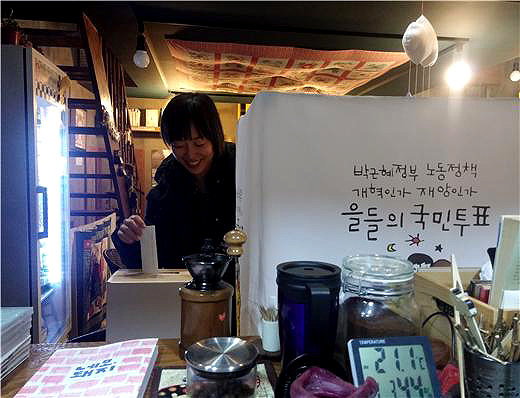 박근혜정부 노동정책
개혁인가 재앙인가
을들의 국민투표
돼지
TEMPERATURE
21.1
344